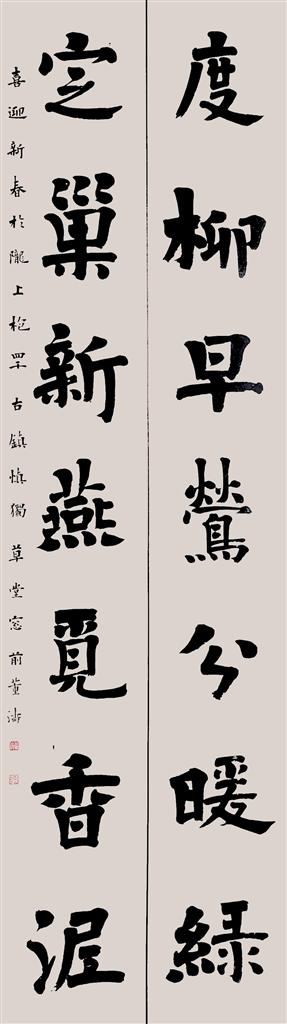 度柳早鶯分暖綠
定巢新燕覓香泥
喜迎新春於隴上枹罕古鎮慎獨草堂窓前董沛